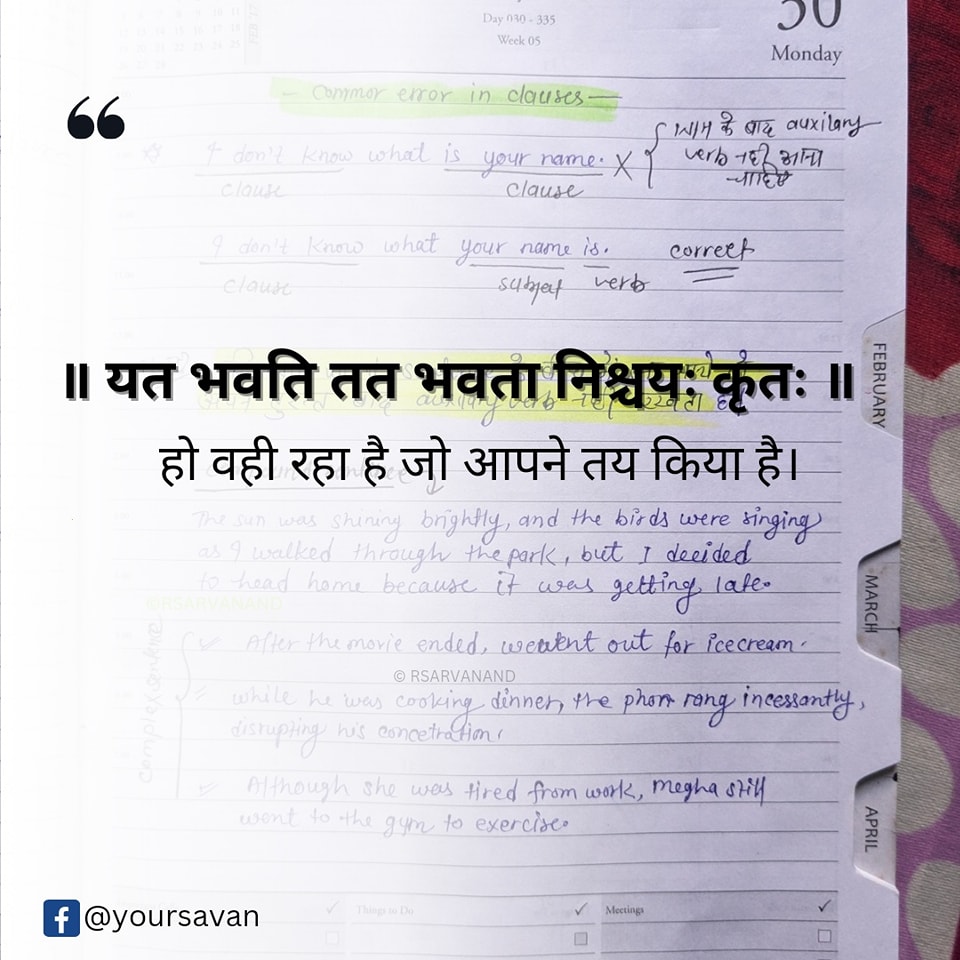 30
Day 030 - 335
Week 05
Monday
- Common error in clauses -
I don't know what is your name. X
के बाद auxilary
verb नहीं आना
चाहिए
clause clause
I don't know what your name is. correct
clause subject verb
FEBRUARY
॥ यत भवति तत भवता निश्चयः कृतः ॥
auxilary verb
हो वही रहा है जो आपने तय किया है।
The sun was shining brightly, and the birds were singing
as I walked through the park, but I decided
to head home because it was getting late.
MARCH
©RSARVANAND
After the movie ended, we went out for icecream.
© RSARVANAND
while he was cooking dinner, the phon rang incessantly,
disrupting his concetration.
Although she was tired from work, Megha still
went to the gym to exercise.
APRIL
Things to Do
Meetings
@yoursavan